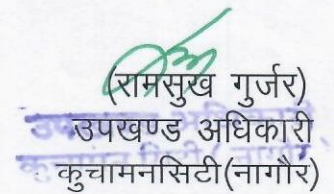 (रामसुख गुर्जर)
उपखण्ड अधिकारी
कुचामनसिटी(नागौर)